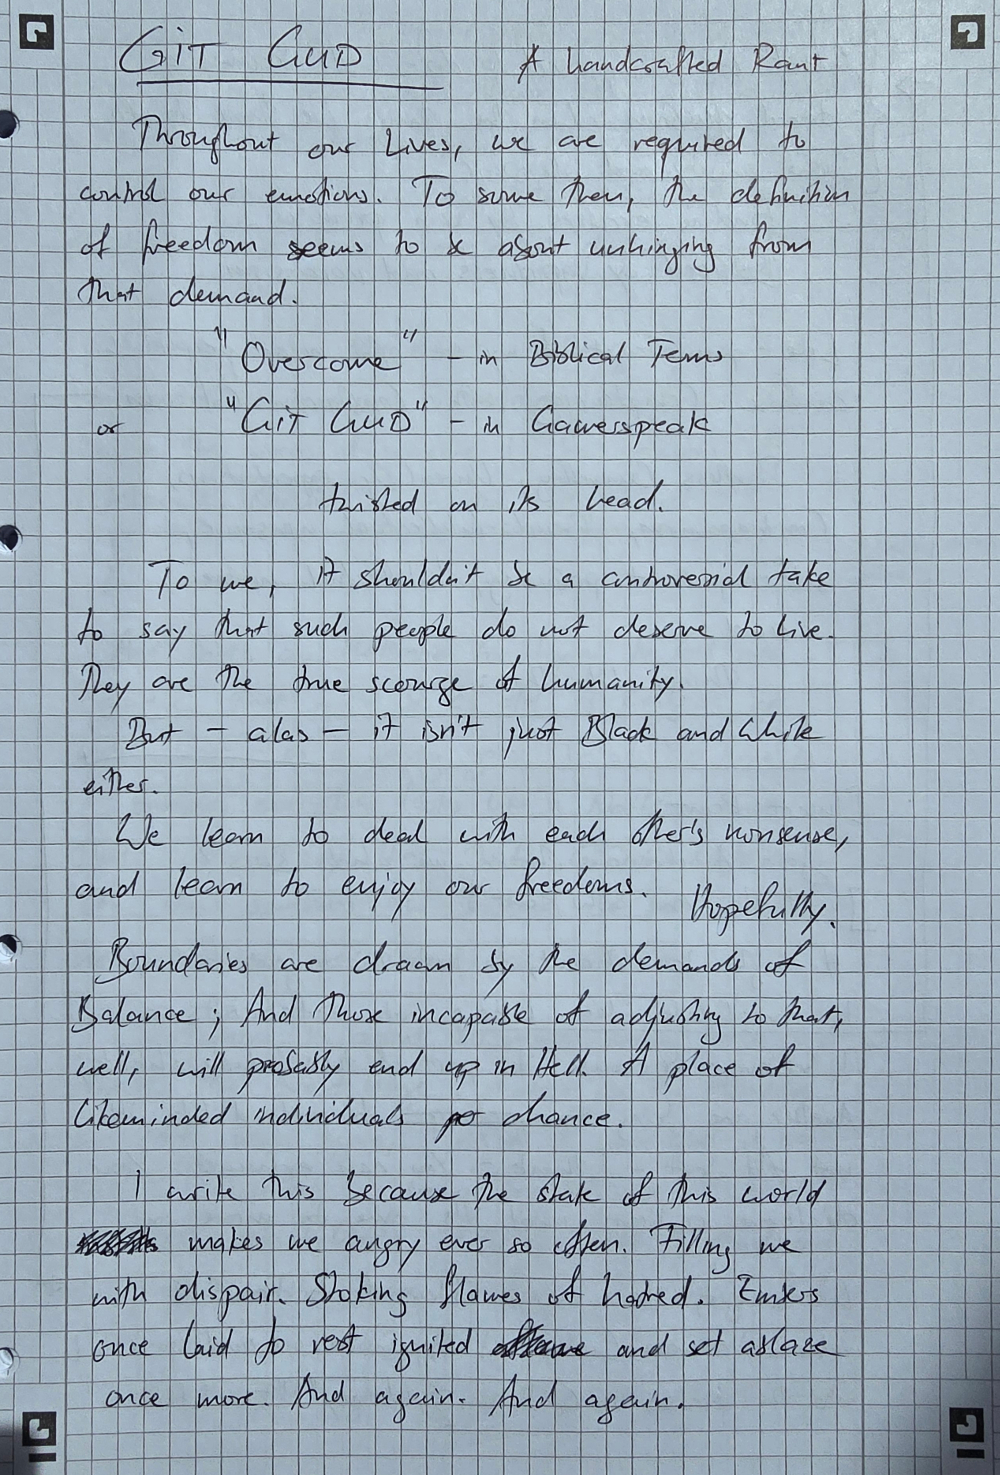 GiT GUD A handcrafted Rant
Throughout our Lives, we are required to
control our emotions. To some then, the definition
of freedom seems to be about unhinging from
that demand.
"Overcome" - in Biblical Terms
or "GiT GUD" - in Gamerspeak
twisted on its head.
To me, it shouldn't be a controversial take
to say that such people do not deserve to live.
They are the true scourge of humanity.
But - alas - it isn't just Black and White
either.
We learn to deal with each other's nonsense,
and learn to enjoy our freedoms. Hopefully.
Boundaries are drawn by the demands of
Balance; And those incapable of adjusting to that,
well, will probably end up in Hell. A place of
likeminded individuals per chance.
I write this because the state of this world
makes me angry ever so often. Filling me
with dispair. Stoking flames of hatred. Embers
once laid to rest ignited and set ablaze
once more. And again. And again.